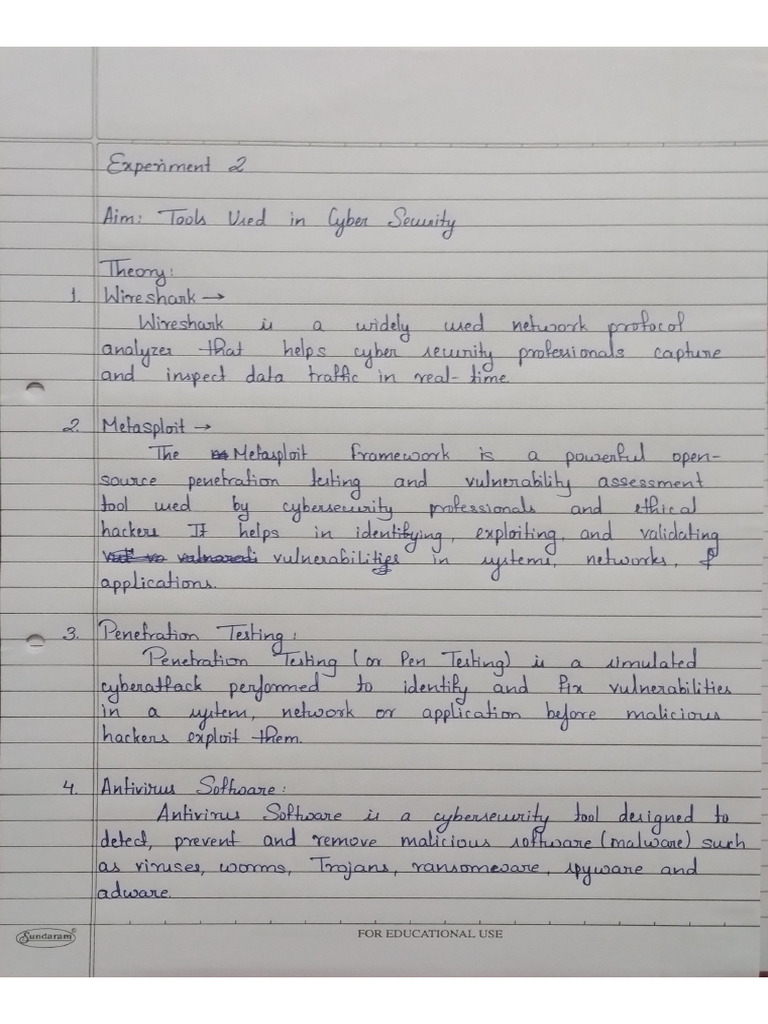 Experiment 2
Aim: Tools Used in Cyber Security
Theory:
1. Wireshark →
Wireshark is a widely used network protocol
analyzer that helps cyber security professionals capture
and inspect data traffic in real-time.
2. Metasploit →
The Metasploit framework is a powerful open-
source penetration testing and vulnerability assessment
tool used by cybersecurity professionals and ethical
hackers It helps in identifying, exploiting, and validating
vulnerabilities in systems, networks, &
applications.
3. Penetration Testing:
Penetration Testing (or Pen Testing) is a simulated
cyberattack performed to identify and fix vulnerabilities
in a system, network or application before malicious
hackers exploit them.
4. Antivirus Software:
Antivirus Software is a cybersecurity tool designed to
detect, prevent and remove malicious software (malware) such
as viruses, worms, Trojans, ransomeware, spyware and
adware.
Sundaram®
FOR EDUCATIONAL USE